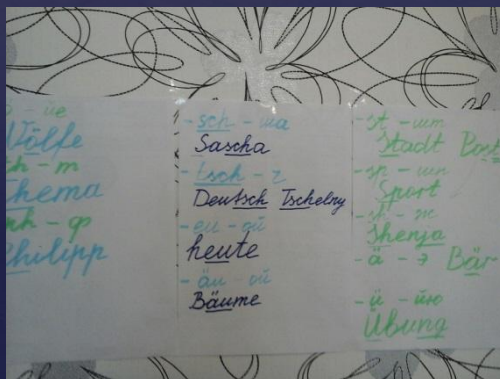 ö - ие
Wölfe
th - т
Thema
ph - ф
Philipp
- sch - ша
Sascha
- tsch - ч
Deutsch Tschelny
- eu - ой
heute
- äu - ой
Bäume
- st - шт
Stadt Post
- sp - шп
Sport
- sh - ж
Shenja
- ä - э Bär
- ü - йю
Übung